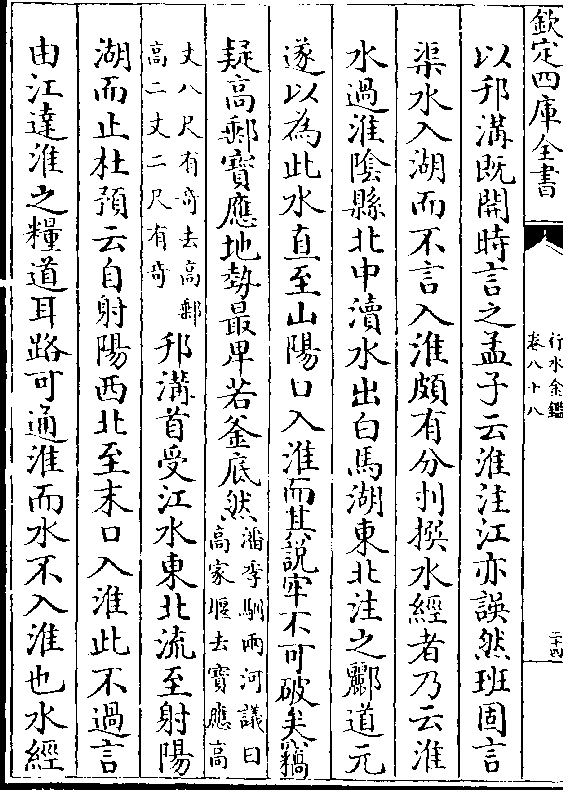 欽定四庫全書
行水金鑑
卷八十八
二十四
以邗溝既開時言之孟子云淮注江亦誤然班固言
渠水入湖而不言入淮頗有分刌撰水經者乃云淮
水過淮陰縣北中瀆水出白馬湖東北注之酈道元
遂以為此水直至山陽口入淮而其說牢不可破矣竊
疑高郵寶應地勢最卑若釜底然潘季馴兩河議曰
高家堰去寶應高
丈八尺有奇去高郵
高二丈二尺有奇邗溝首受江水東北流至射陽
湖而止杜預云自射陽西北至末口入淮此不過言
由江達淮之糧道耳路可通淮而水不入淮也水經